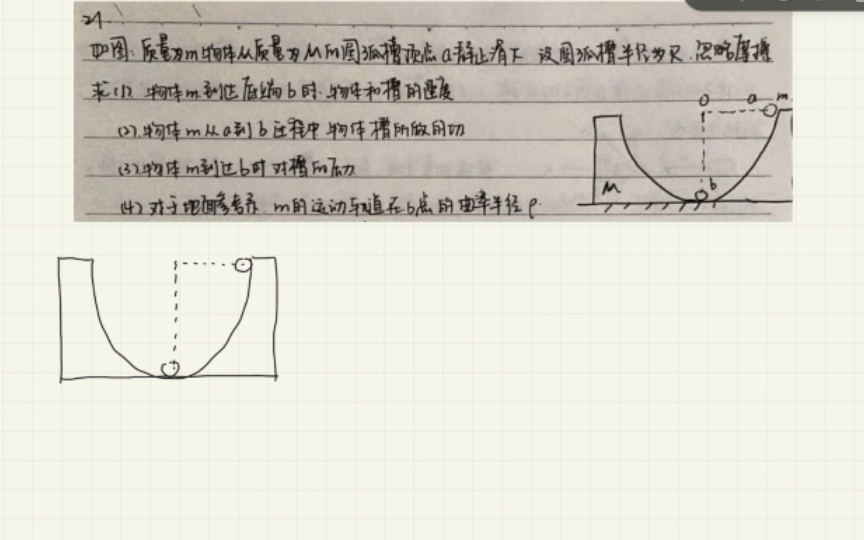 24.
如图:质量为m物体从质量为M的圆弧槽顶点a静止滑下 设圆弧槽半径为R.忽略摩擦
求(1) 物体m到达底端b时.物体和槽的速度
(2).物体m从a到b过程中 物体槽所做的功
(3).物体m到达b时对槽的压力
(4) 对于地面参考系 m的运动轨道在b点的曲率半径ρ.
O a m
M b